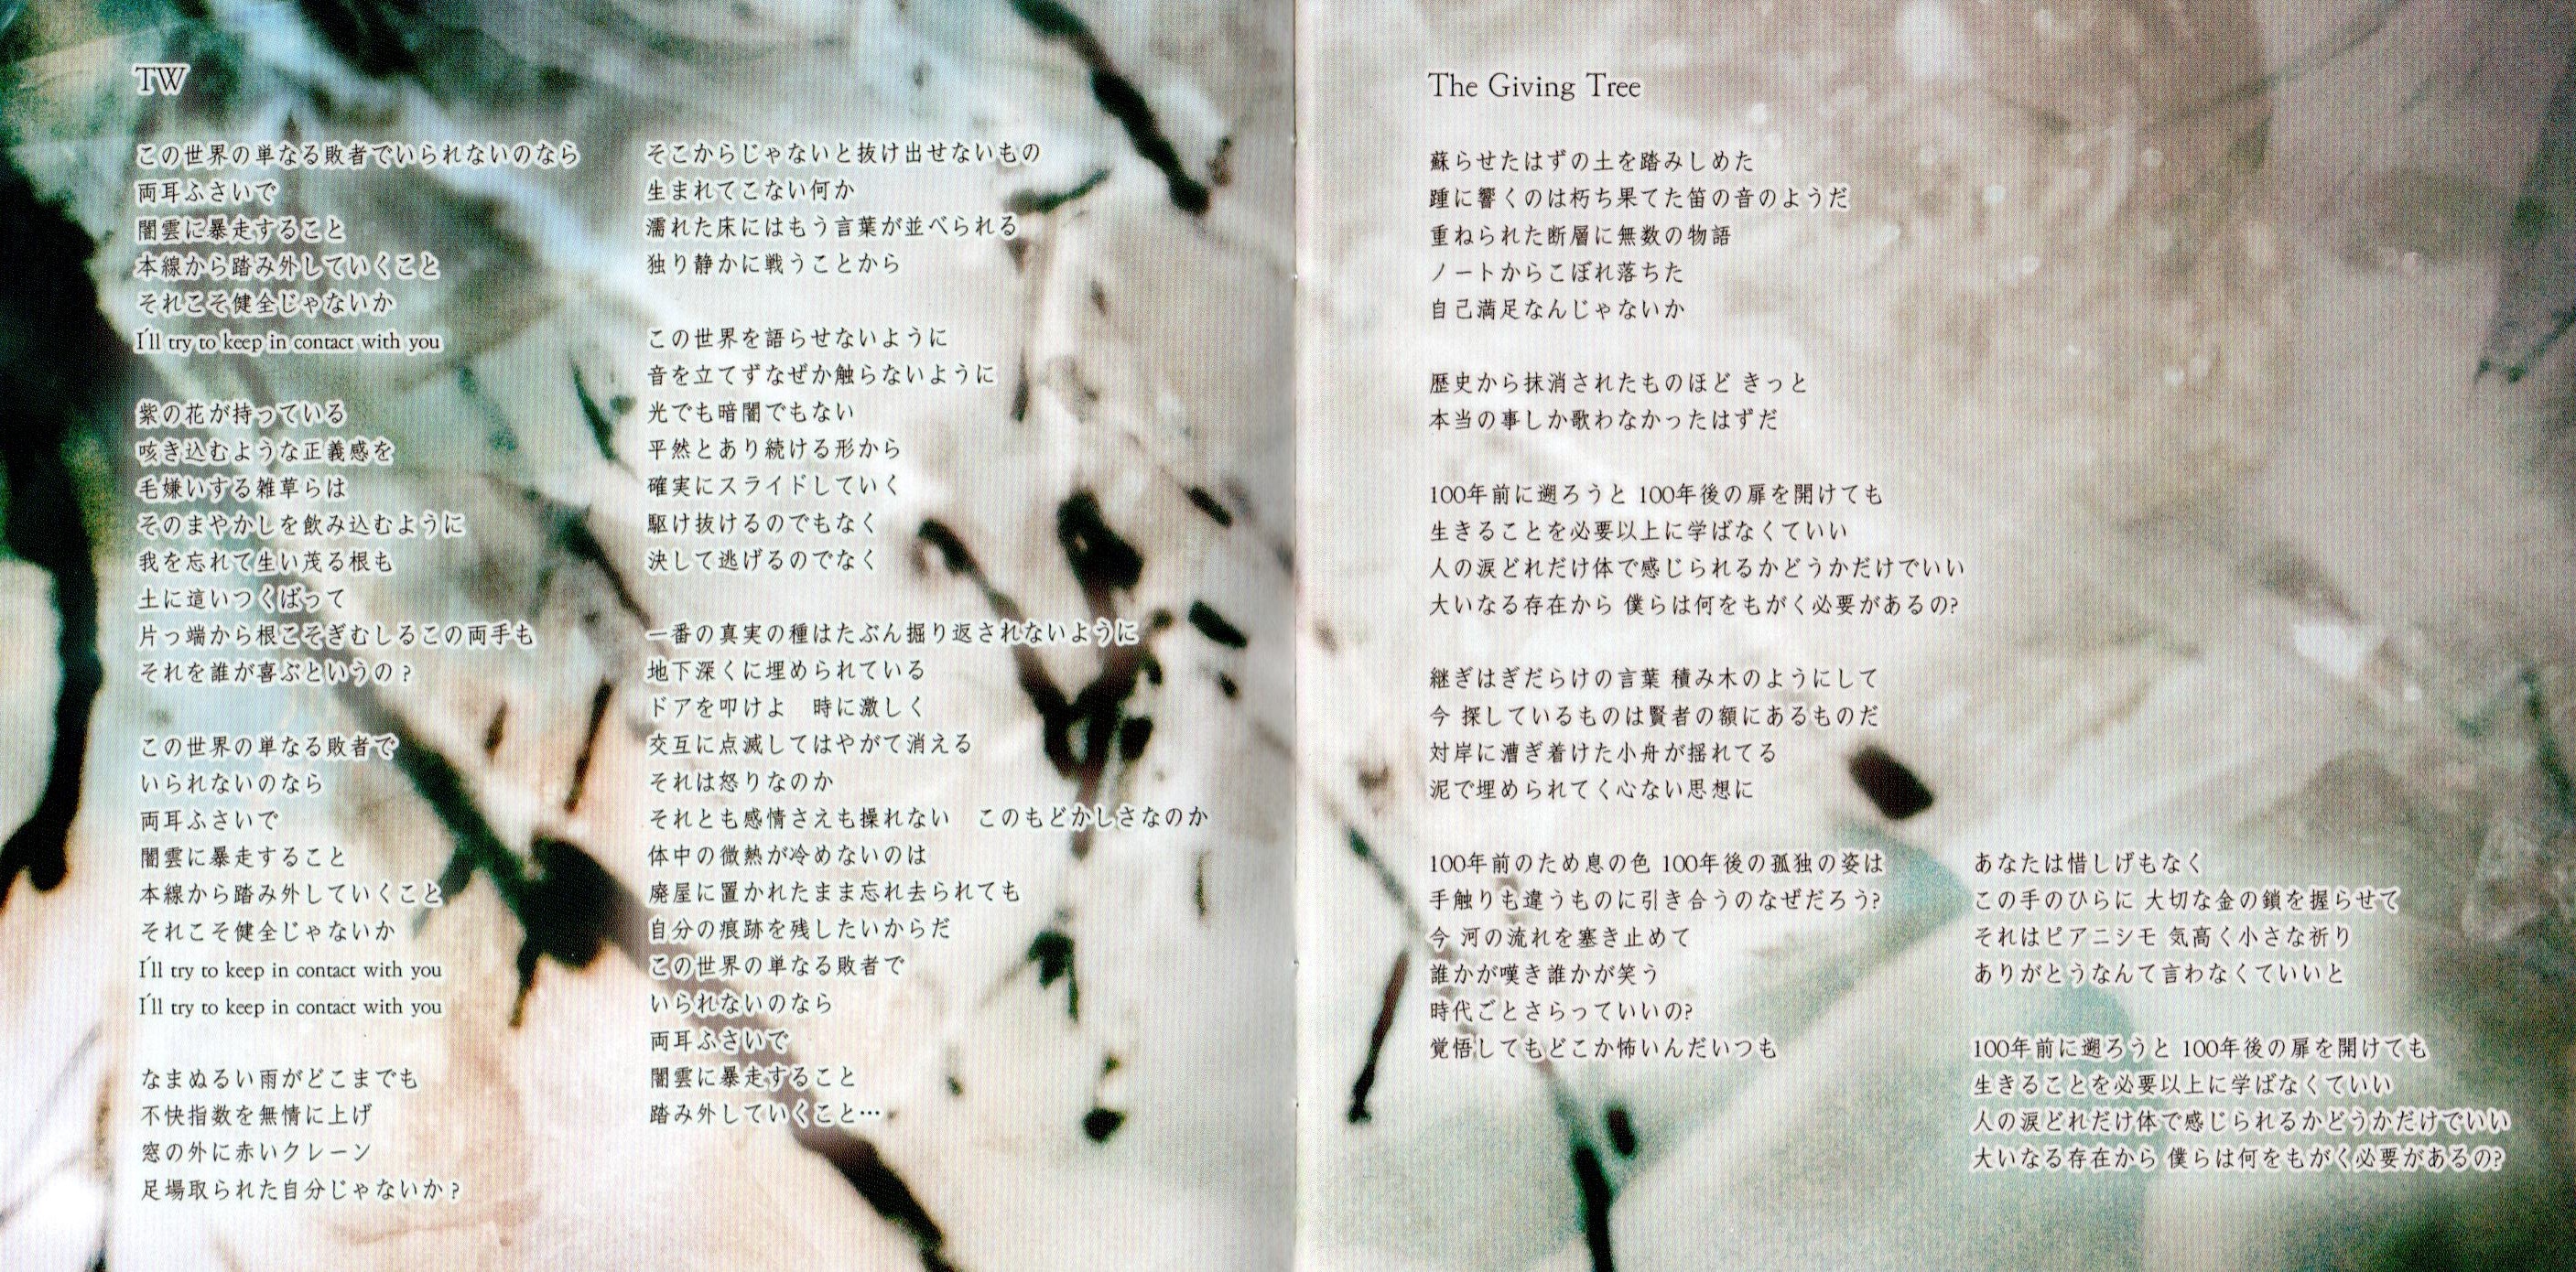 TW
この世界の単なる敗者でいられないのなら
両耳ふさいで
闇雲に暴走すること
本線から踏み外していくこと
それこそ健全じゃないか
I'll try to keep in contact with you
紫の花が持っている
咳き込むような正義感を
毛嫌いする雑草らは
そのまやかしを飲み込むように
我を忘れて生い茂る根も
土に這いつくばって
片っ端から根こそぎむしるこの両手も
それを誰が喜ぶというの?
この世界の単なる敗者で
いられないのなら
両耳ふさいで
闇雲に暴走すること
本線から踏み外していくこと
それこそ健全じゃないか
I'll try to keep in contact with you
I'll try to keep in contact with you
なまぬるい雨がどこまでも
不快指数を無情に上げ
窓の外に赤いクレーン
足場取られた自分じゃないか?
そこからじゃないと抜け出せないもの
生まれてこない何か
濡れた床にはもう言葉が並べられる
独り静かに戦うことから
この世界を語らせないように
音を立てずなぜか触らないように
光でも暗闇でもない
平然とあり続ける形から
確実にスライドしていく
駆け抜けるのでもなく
決して逃げるのでなく
一番の真実の種はたぶん掘り返されないように
地下深くに埋められている
ドアを叩けよ　時に激しく
交互に点滅してはやがて消える
それは怒りなのか
それとも感情さえも操れない　このもどかしさなのか
体中の微熱が冷めないのは
廃屋に置かれたまま忘れ去られても
自分の痕跡を残したいからだ
この世界の単なる敗者で
いられないのなら
両耳ふさいで
闇雲に暴走すること
踏み外していくこと…
The Giving Tree
蘇らせたはずの土を踏みしめた
踵に響くのは朽ち果てた笛の音のようだ
重ねられた断層に無数の物語
ノートからこぼれ落ちた
自己満足なんじゃないか
歴史から抹消されたものほど きっと
本当の事しか歌わなかったはずだ
100年前に遡ろうと 100年後の扉を開けても
生きることを必要以上に学ばなくていい
人の涙どれだけ体で感じられるかどうかだけでいい
大いなる存在から 僕らは何をもがく必要があるの?
継ぎはぎだらけの言葉 積み木のようにして
今 探しているものは賢者の額にあるものだ
対岸に漕ぎ着けた小舟が揺れてる
泥で埋められてく心ない思想に
100年前のため息の色 100年後の孤独の姿は
手触りも違うものに引き合うのなぜだろう?
今 河の流れを塞き止めて
誰かが嘆き誰かが笑う
時代ごとさらっていいの?
覚悟してもどこか怖いんだいつも
あなたは惜しげもなく
この手のひらに 大切な金の鎖を握らせて
それはピアニシモ 気高く小さな祈り
ありがとうなんて言わなくていいと
100年前に遡ろうと 100年後の扉を開けても
生きることを必要以上に学ばなくていい
人の涙どれだけ体で感じられるかどうかだけでいい
大いなる存在から 僕らは何をもがく必要があるの?